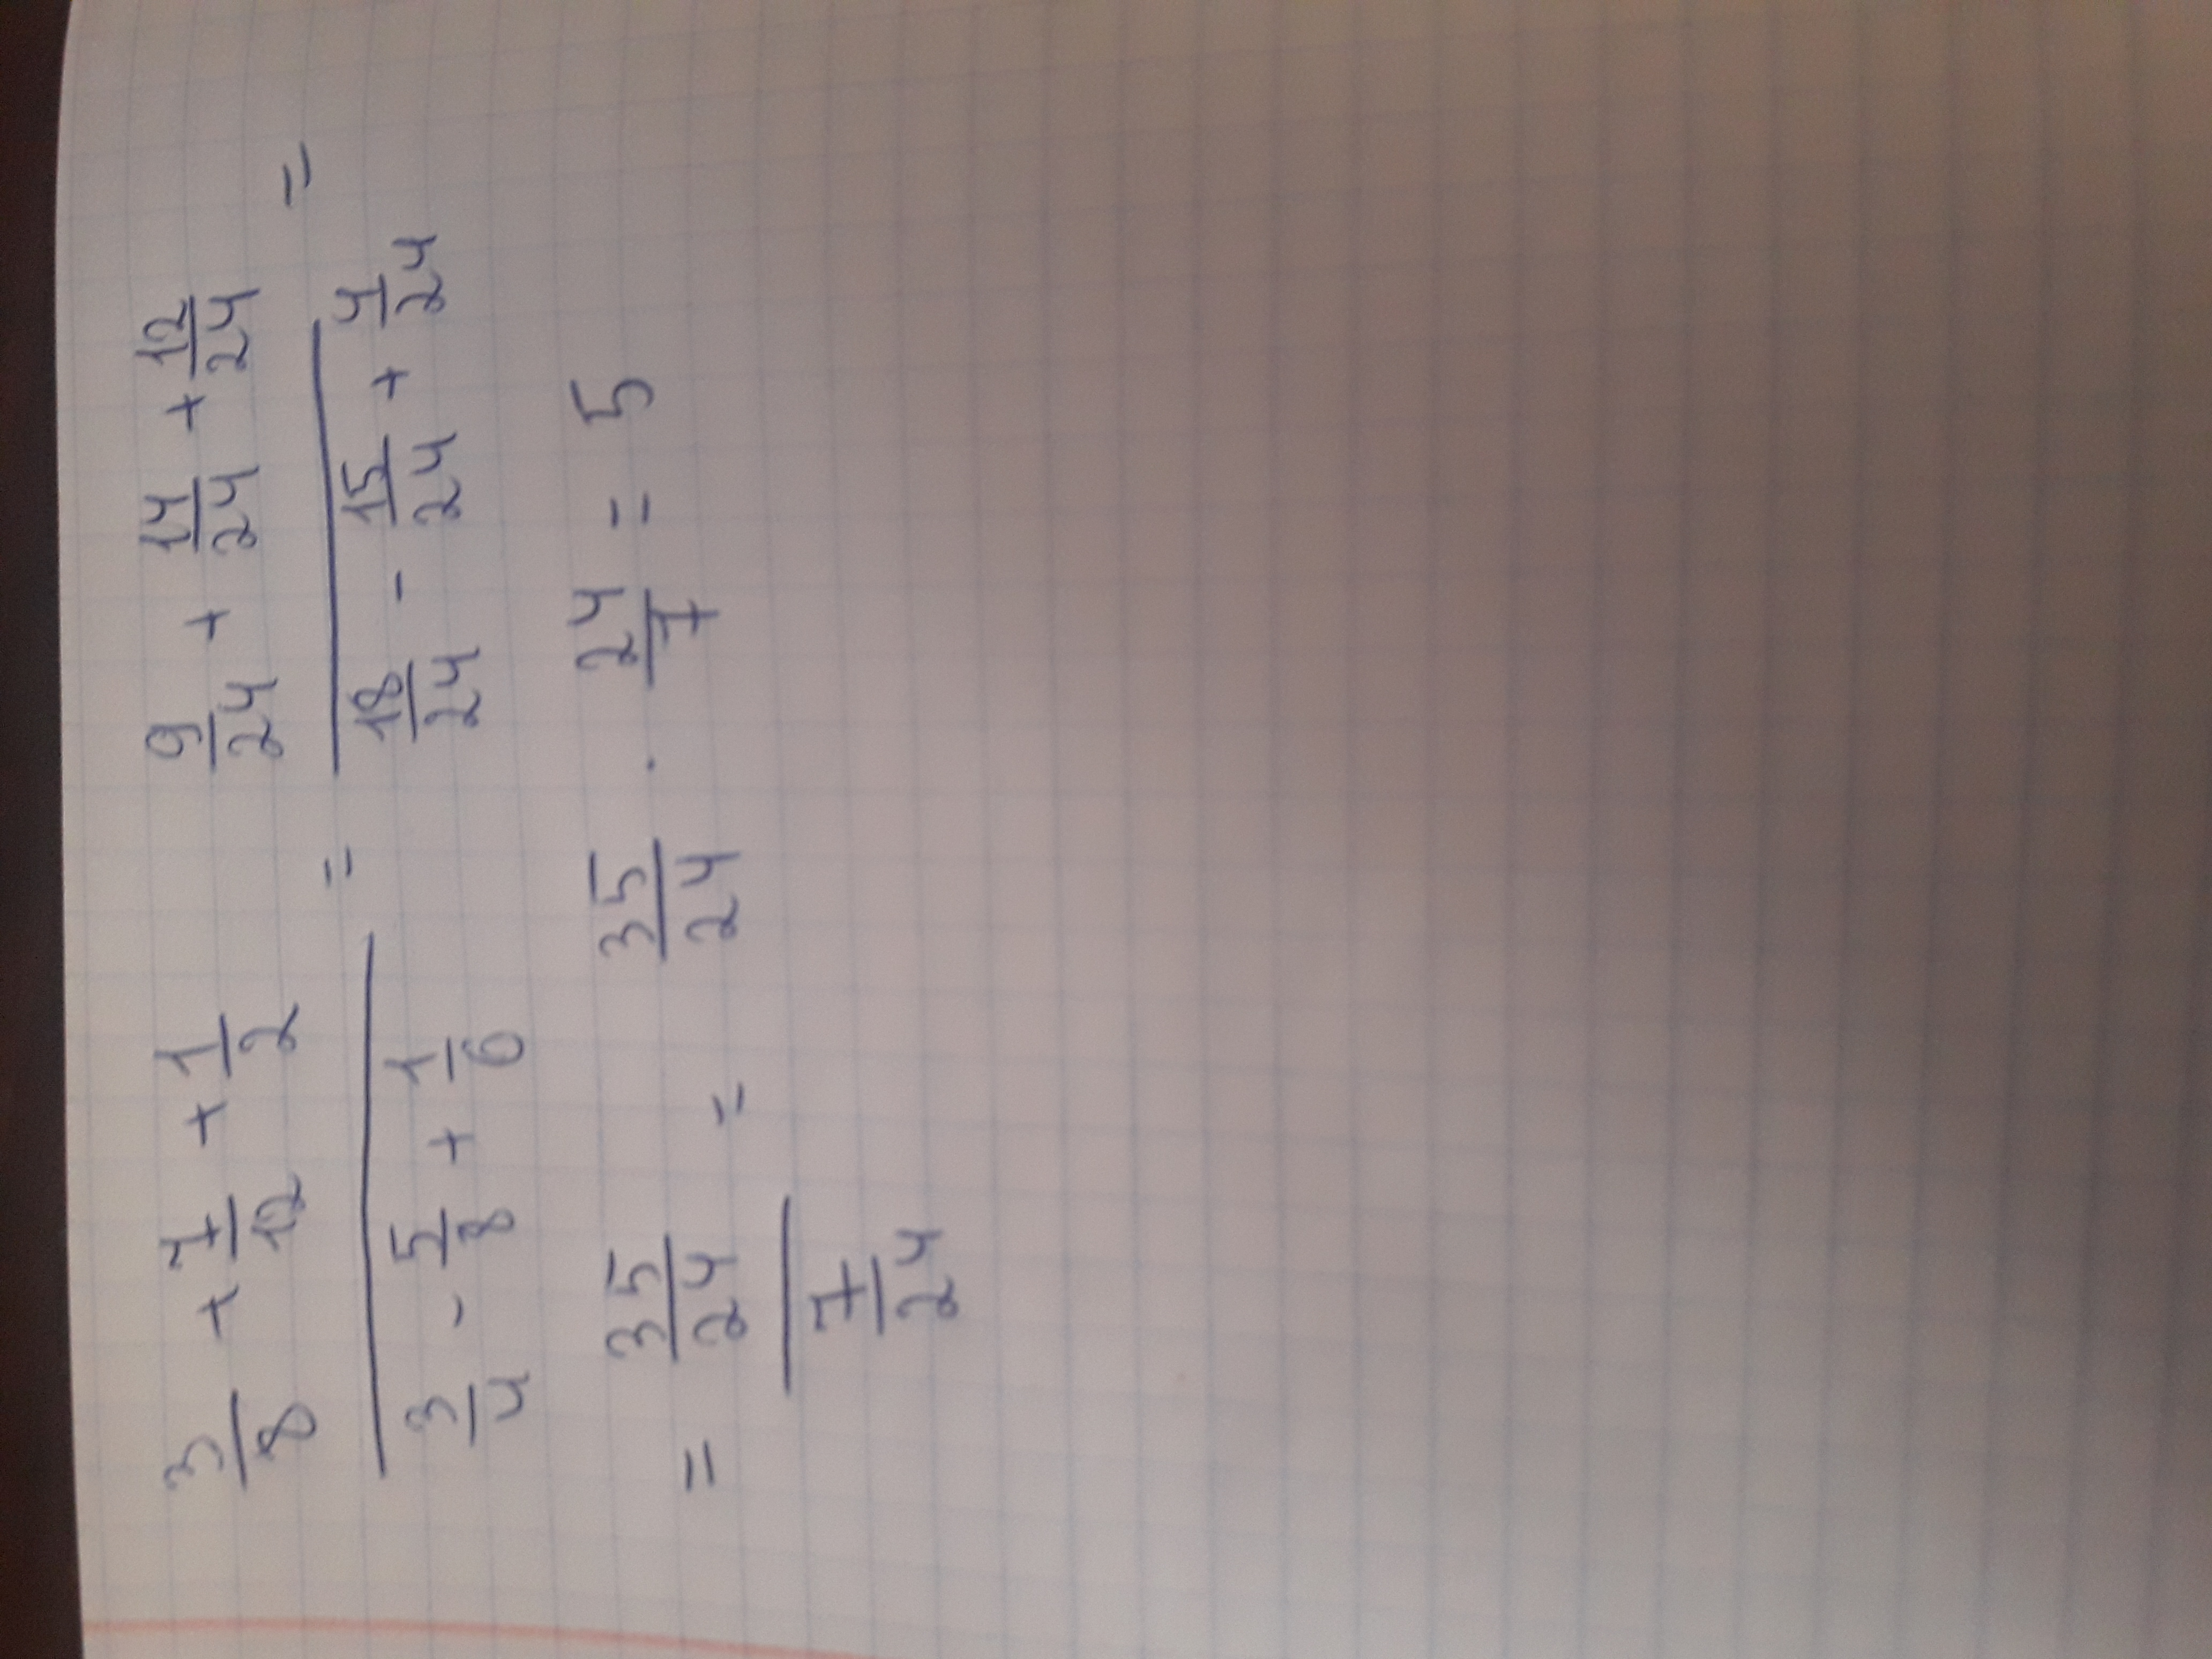 3/8 + 7/12 + 1/2 / 3/4 - 5/8 + 1/6 = 9/24 + 14/24 + 12/24 / 18/24 - 15/24 + 4/24 =
= 35/24 / 7/24 = 35/24 · 24/7 = 5